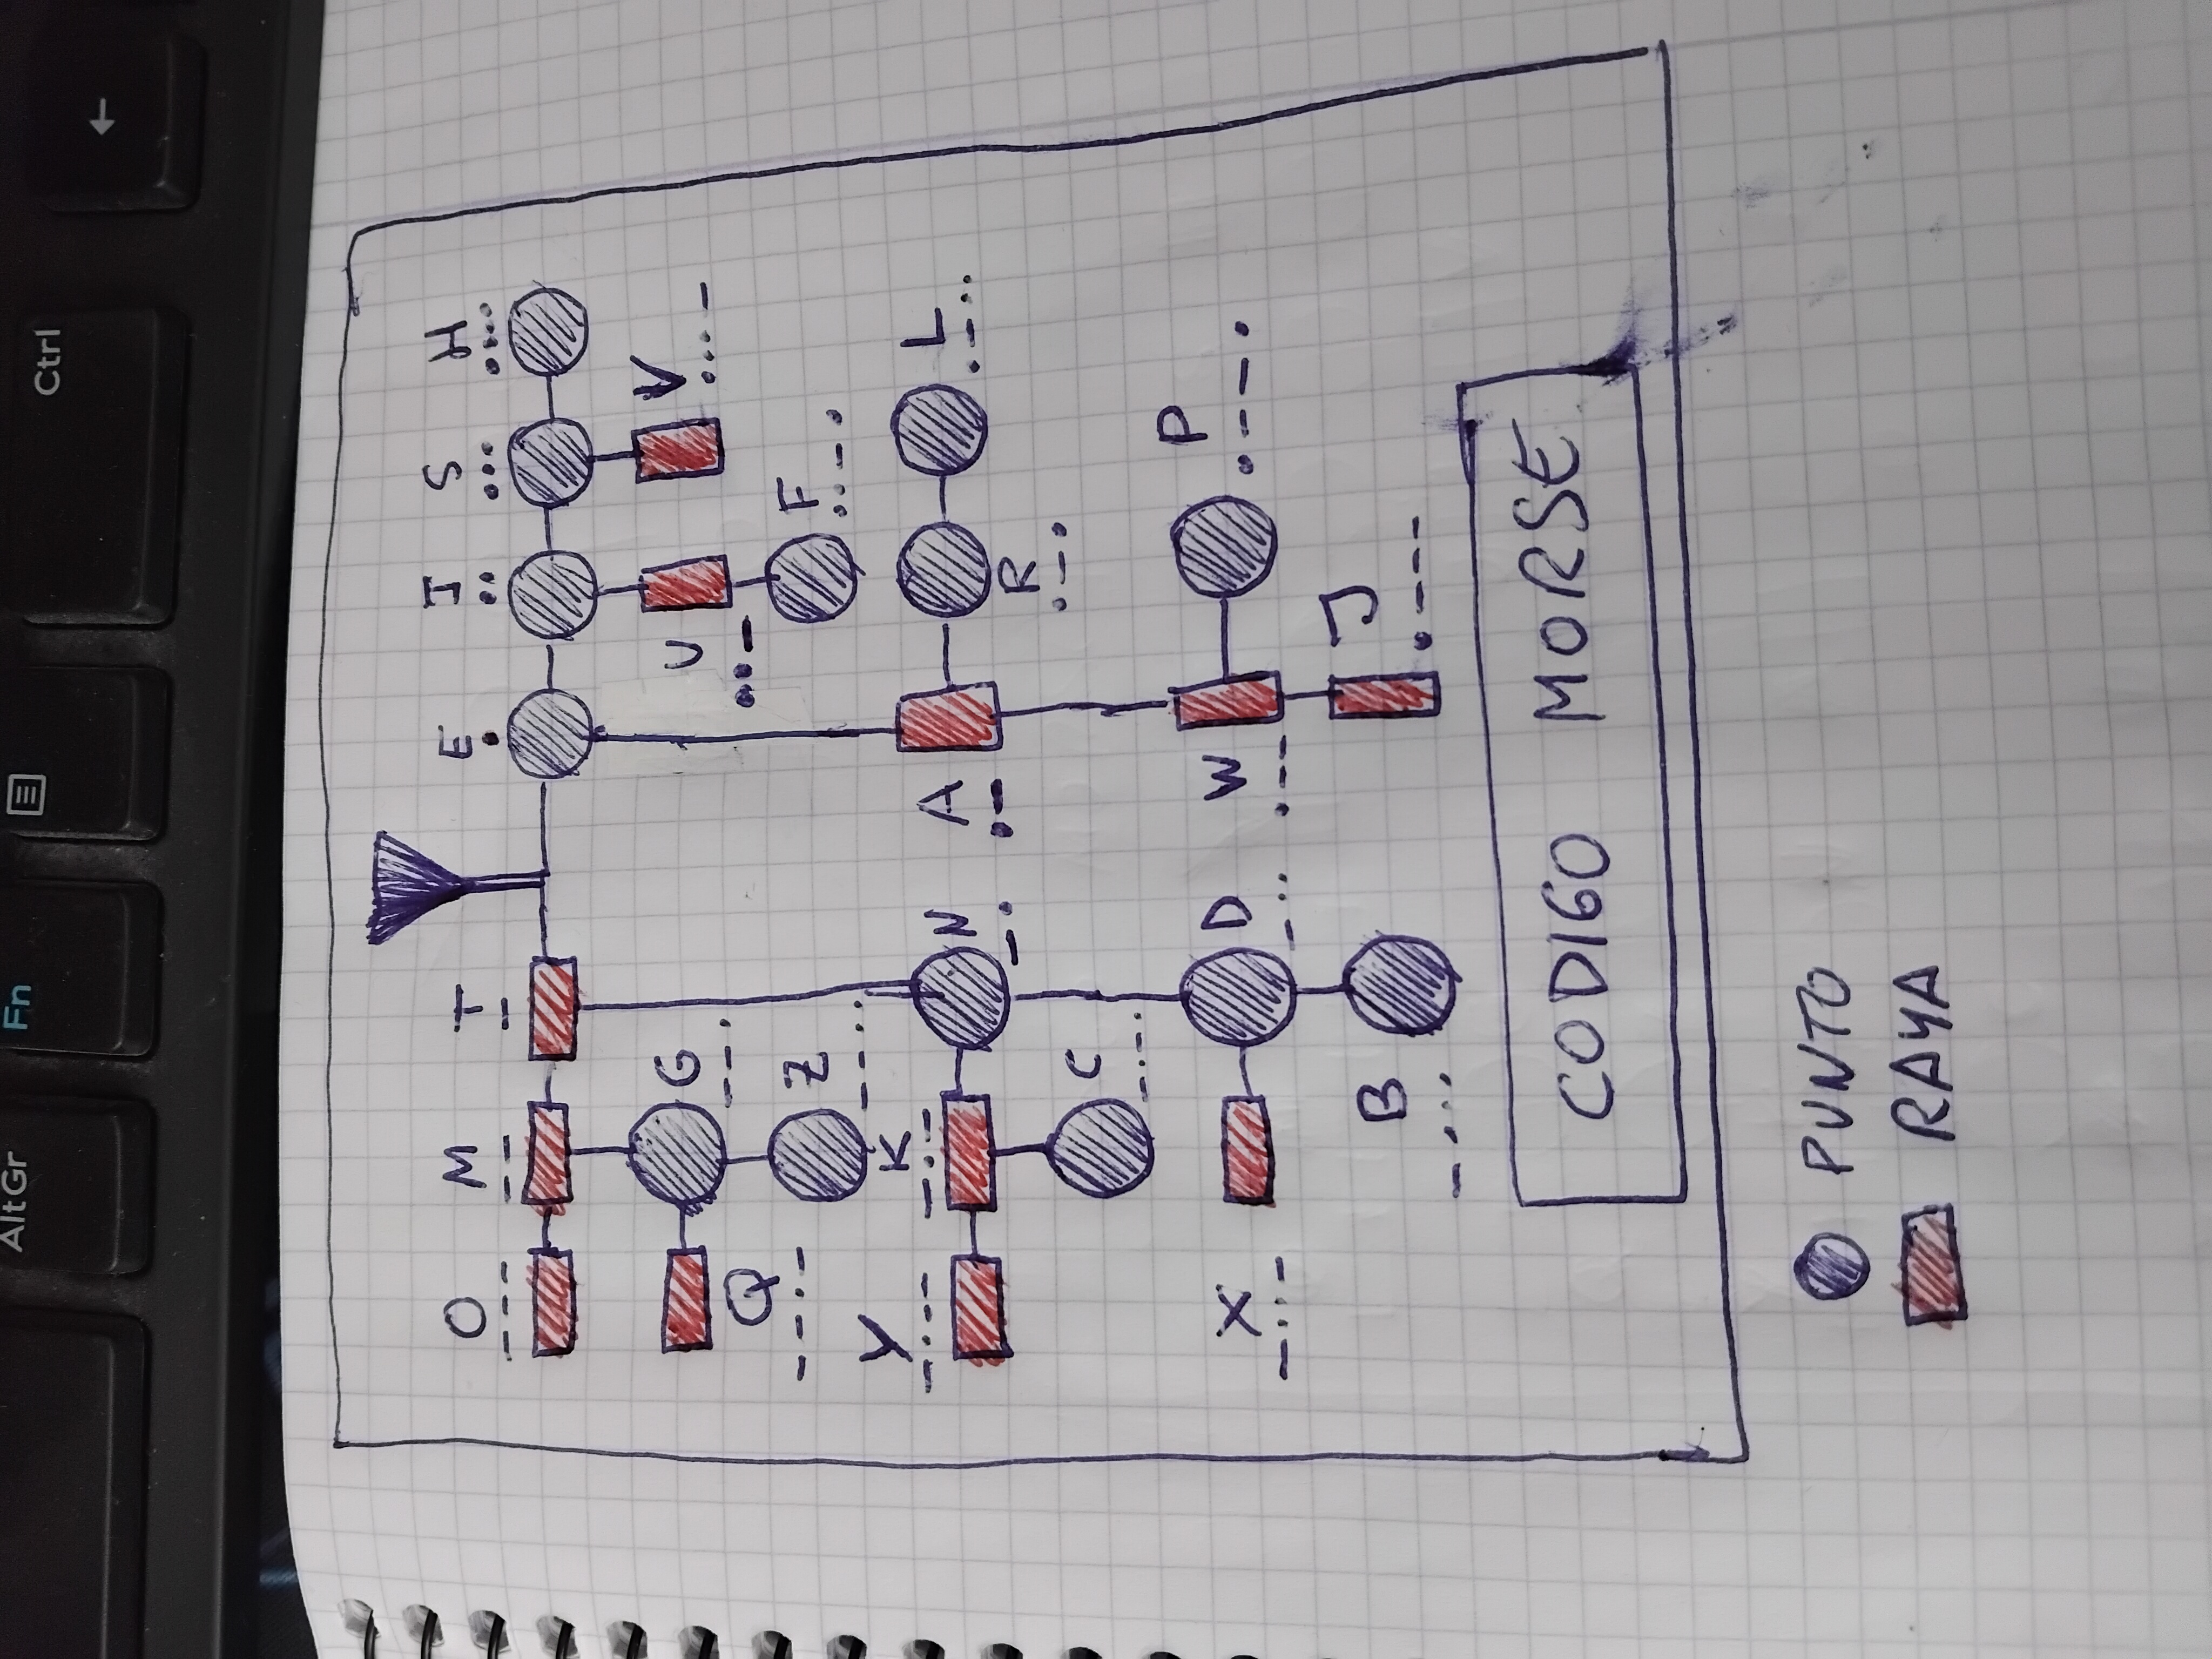 AltGr Fn Ctrl ←
O M T E I S H
--- -- - . .. ... ....
G U V
--. ..- ...-
Q Z F
--.- --.. ..-.
Y K N A L
-.-- -.- -. .- .-..
C R
-.-. .-.
X D W P
-..- -.. .-- .--.
B J
-... .---
CODIGO MORSE
PUNTO
RAYA